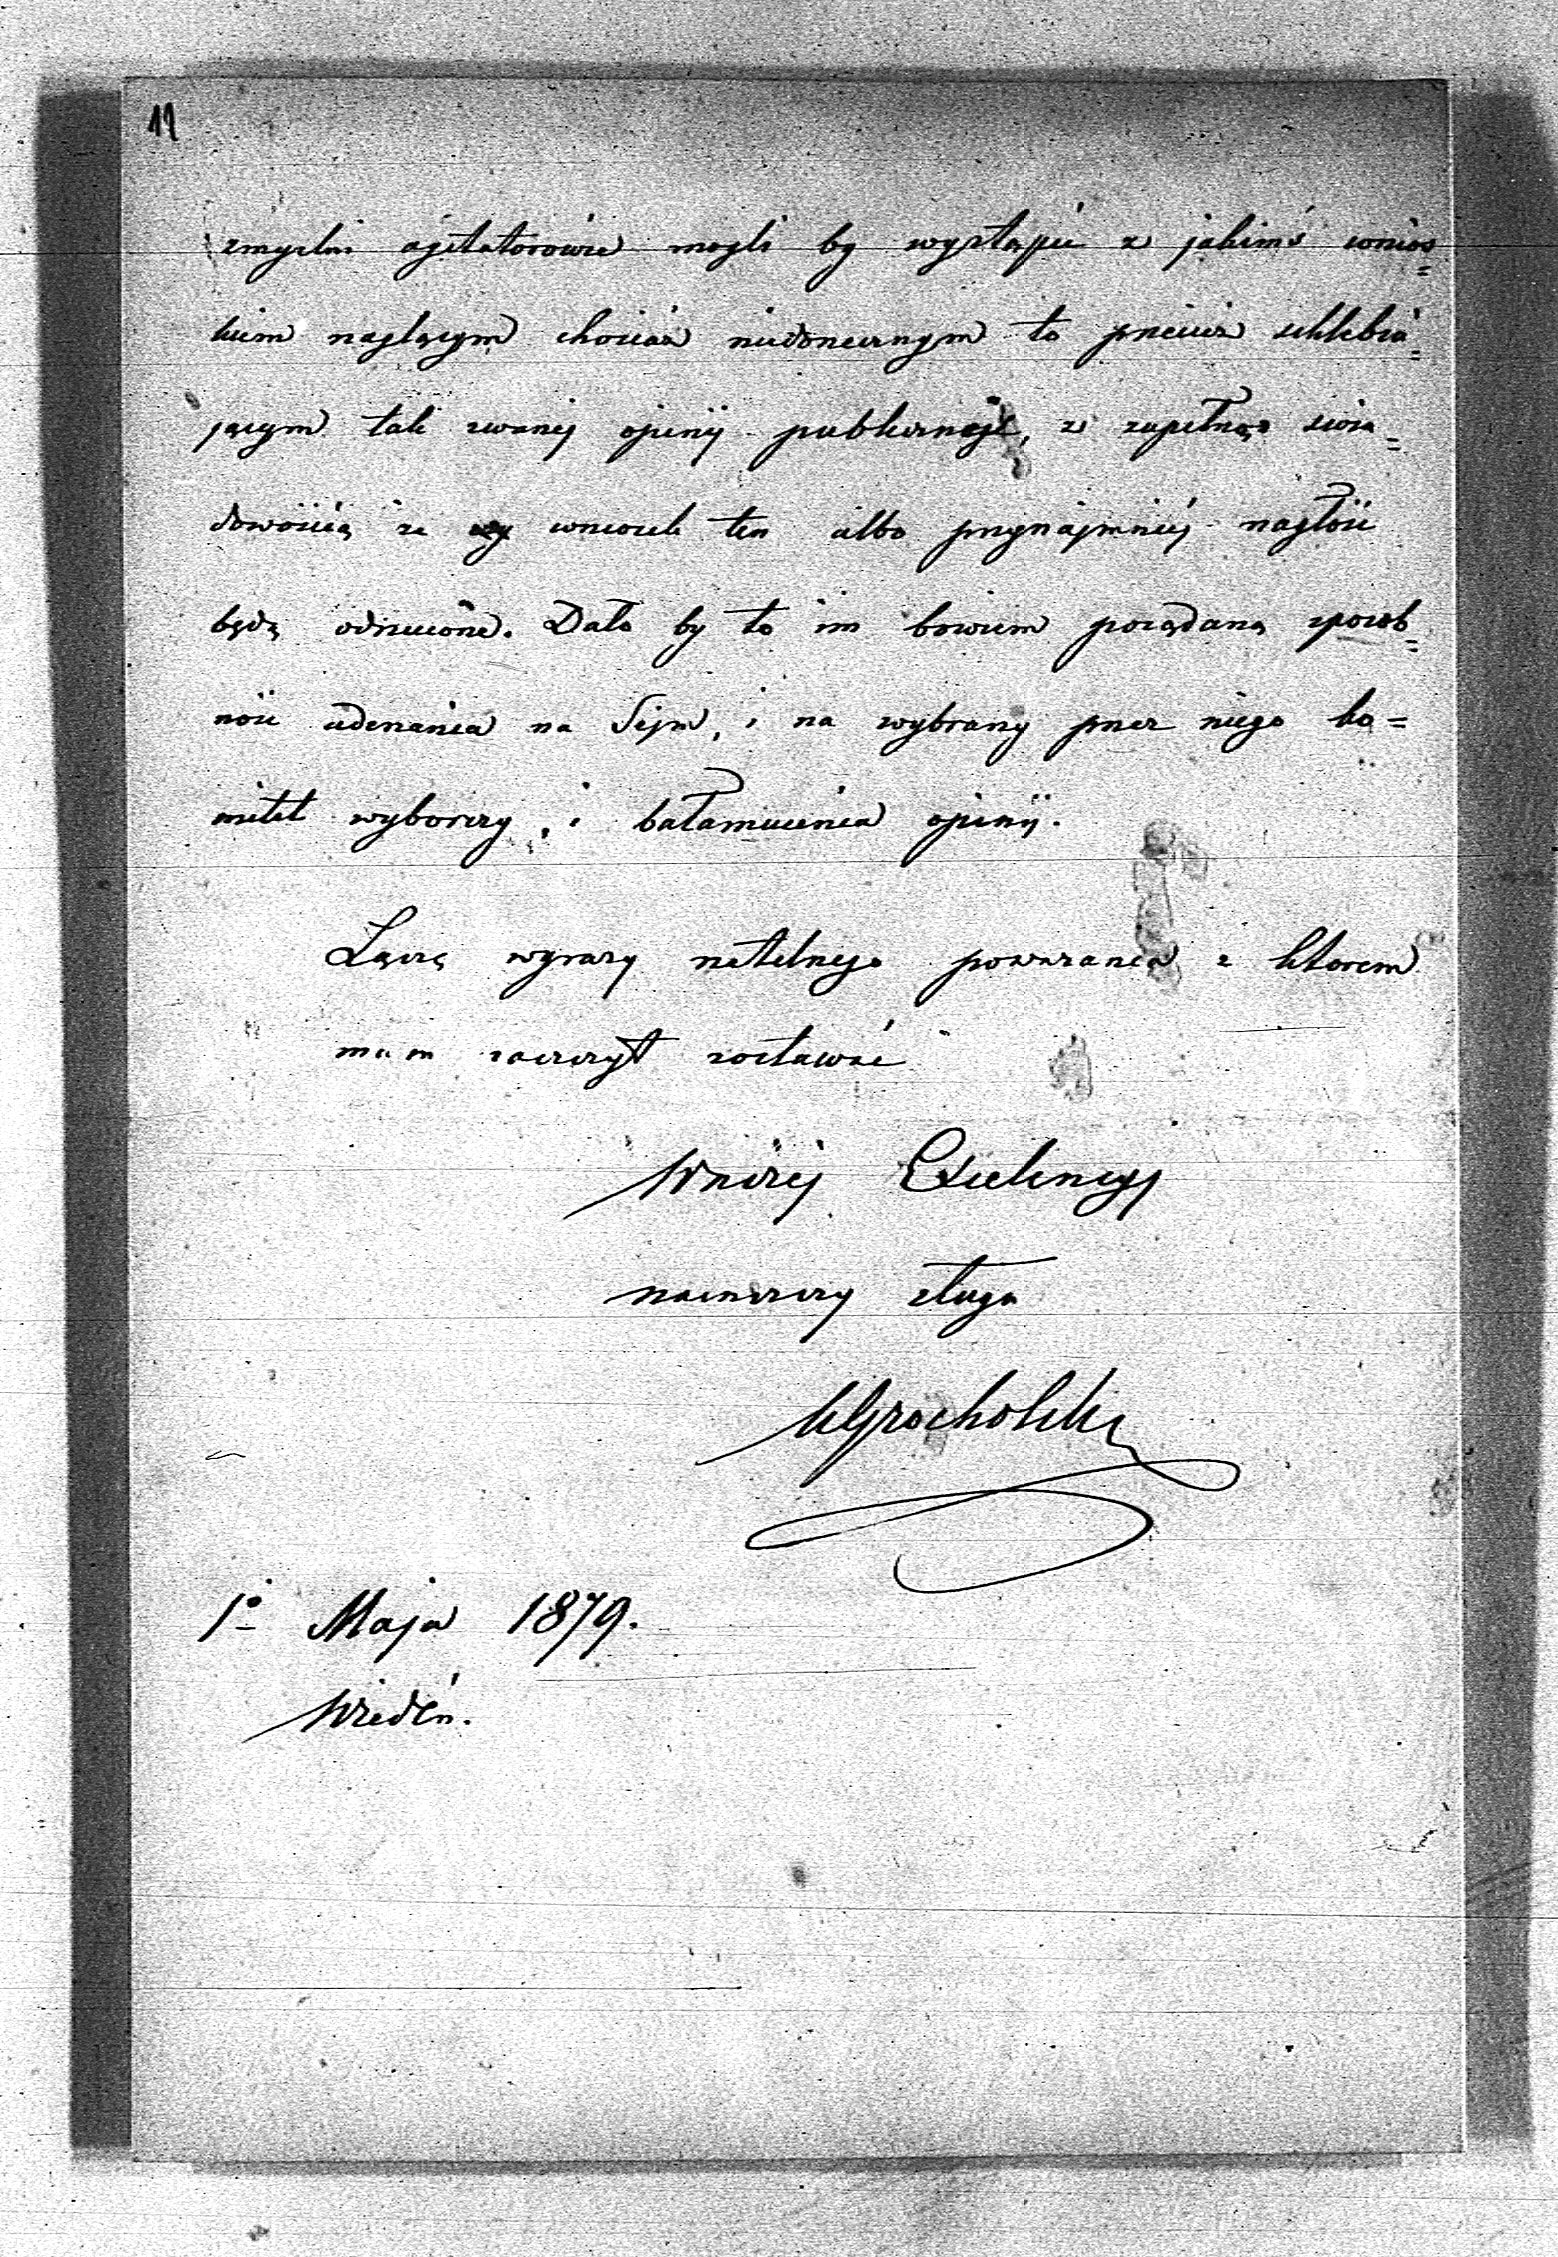 11
zmyślni agitatorowie mogli by wystąpić z jakimś wnios=
kiem naglącym chociaż niedorzecznym to przecież schlebia=
jącym tak zwanej opinij publicznej, z zupełną świa=
domością że wniosek ten albo przynajmniej nagłość
będą odrzucone. Dało by to im bowiem pożądaną sposob=
ność uderzania na Sejm, i na wybrany przez niego ko=
mitet wyborczy, i bałamucenia opinij.
Łączę wyrazy rzetelnego poważania z ktorem
mam zaszczyt zostawać
Waszej Excelencyj
najniższy sługa
KGrocholski
1° Maja 1879.
Wiedeń.